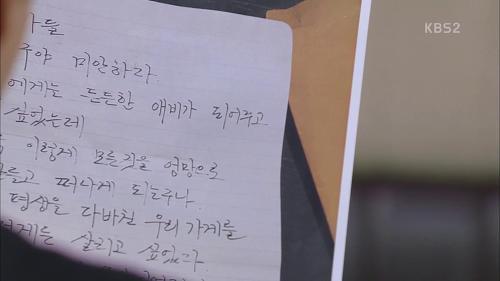 KBS2
아들
주야 미안하다.
에게는 든든한 애비가 되어주고
싶었는데
이렇게 모든것을 엉망으로
만들고 떠나게 되는구나.
평생을 다바친 우리 가게를
살리고 싶었다.